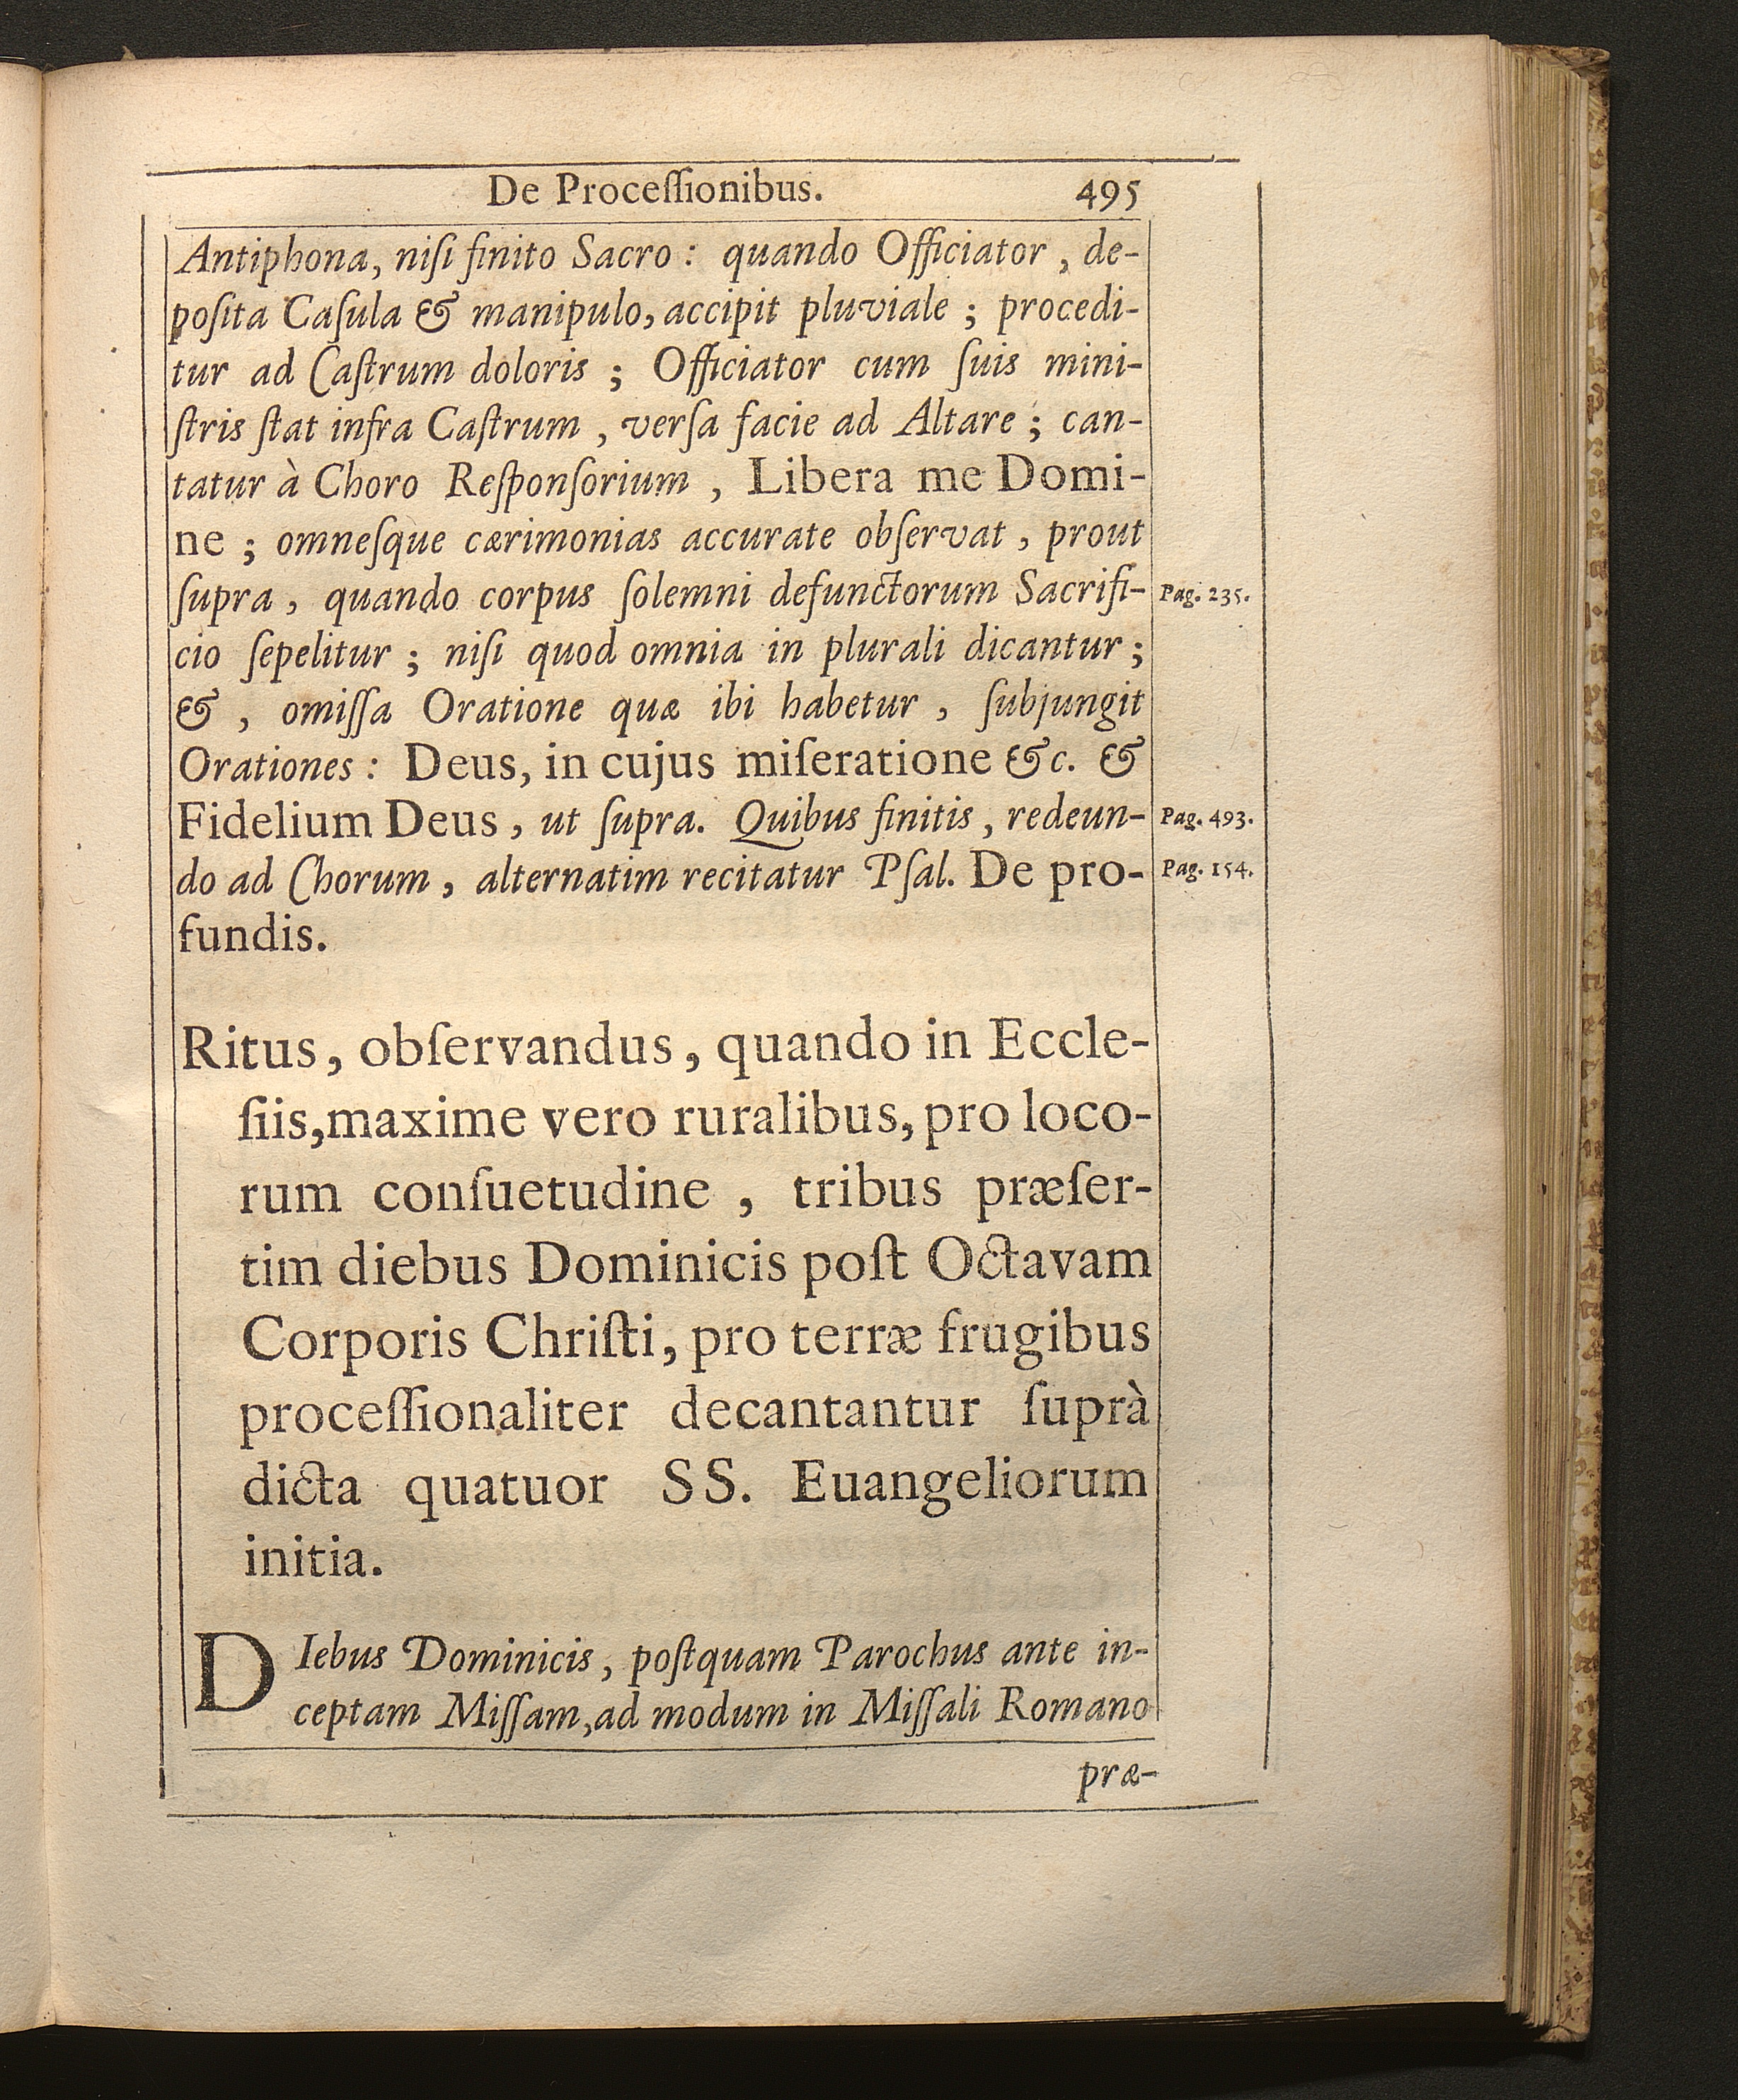 De Proceſſionibus. 495
Antiphona, niſi finito Sacro: quando Officiator, de-
poſita Caſula & manipulo, accipit pluviale; procedi-
tur ad Caſtrum doloris; Officiator cum ſuis mini-
ſtris ſtat infra Caſtrum, verſa facie ad Altare; can-
tatur à Choro Reſponſorium, Libera me Domi-
ne; omneſque cærimonias accurate obſervat, prout
ſupra, quando corpus ſolemni defunctorum Sacrifi- Pag. 235.
cio ſepelitur; niſi quod omnia in plurali dicantur;
&, omiſſa Oratione quæ ibi habetur, ſubjungit
Orationes: Deus, in cujus miſeratione &c. &
Fidelium Deus, ut ſupra. Quibus finitis, redeun- Pag. 493.
do ad Chorum, alternatim recitatur Pſal. De pro- Pag. 154.
fundis.
Ritus, obſervandus, quando in Eccle-
ſiis, maxime vero ruralibus, pro loco-
rum conſuetudine, tribus præſer-
tim diebus Dominicis poſt Octavam
Corporis Chriſti, pro terræ frugibus
proceſſionaliter decantantur ſuprà
dicta quatuor SS. Euangeliorum
initia.
DIebus Dominicis, poſtquam Parochus ante in-
ceptam Miſſam, ad modum in Miſſali Romano
præ-